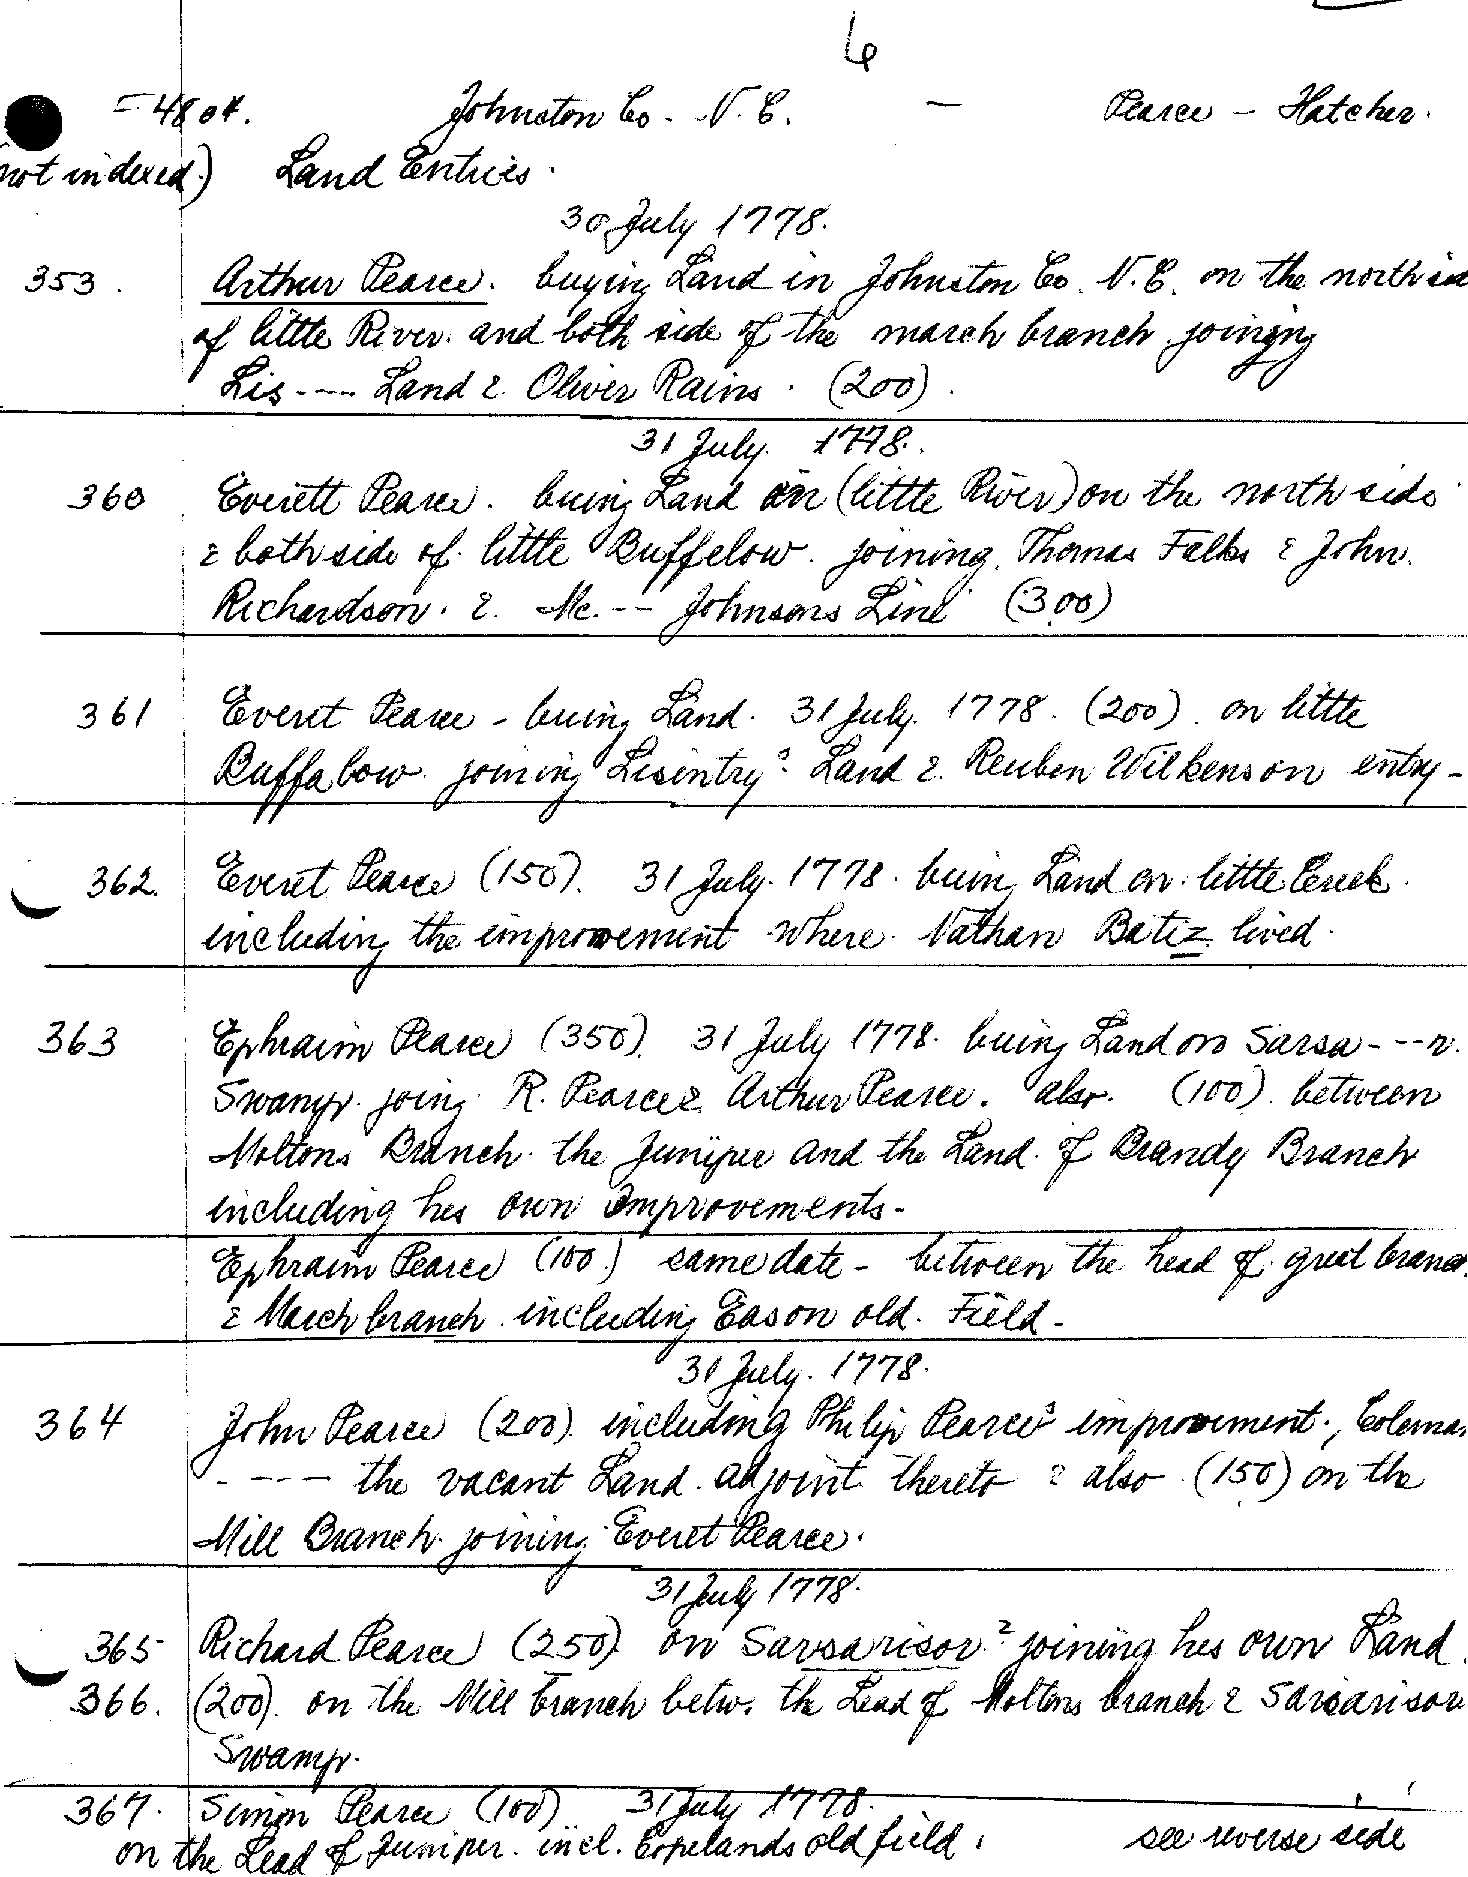 6
- 4804. Johnston Co - N. C. — Pearce - Hatcher.
not indexed.) Land Entries.
30 July 1778.
353. Arthur Pearce. buying Land in Johnston Co. N.C. on the north
of little River. and both side of the march branch joinging
Lis---- Land & Oliver Rains. (200).
31 July. 1778.
360 Everett Pearce. buing Land in (little River) on the north side
& both side of little Buffelow. joining Thomas Falks & John.
Richardson. & Mc. -- Johnsons Line (300)
361 Everet Pearce - buing Land. 31 July. 1778. (200). on little
Buffalow joining Lisintry? Land & Reuben Wilkenson entry-
362. Everet Pearce (150). 31 July. 1778. buing Land on little Creek.
including the improvement where Nathan Batiz lived.
363 Ephraim Pearce (350). 31 July 1778. buing Land on Sarsa---r.
Swamp. joing R. Pearce & Arthur Pearce. also. (100). between
Moltons Branch. the Juniper and the Land. of Brandy Branch
including his own Improvements-
Ephraim Pearce (100.) same date - between the head of great
& March branch including Eason old. Field-
31 July. 1778.
364 John Pearce (200). including Philip Pearce's improvement.,
- --- the vacant Land. adjoint thereto & also (150) on the
Mill Branch joining Everet Pearce.
31 July 1778.
365 Richard Pearce (250) on Sarsarisor? joining his own Land.
366. (200). on the Mill branch betw. the Lead of Moltons branch & Sarsarisor
Swamp.
367. Simon Pearce (100) 31 July 1778.
on the Lead of Juniper. incl. Copelands old field. see reverse side